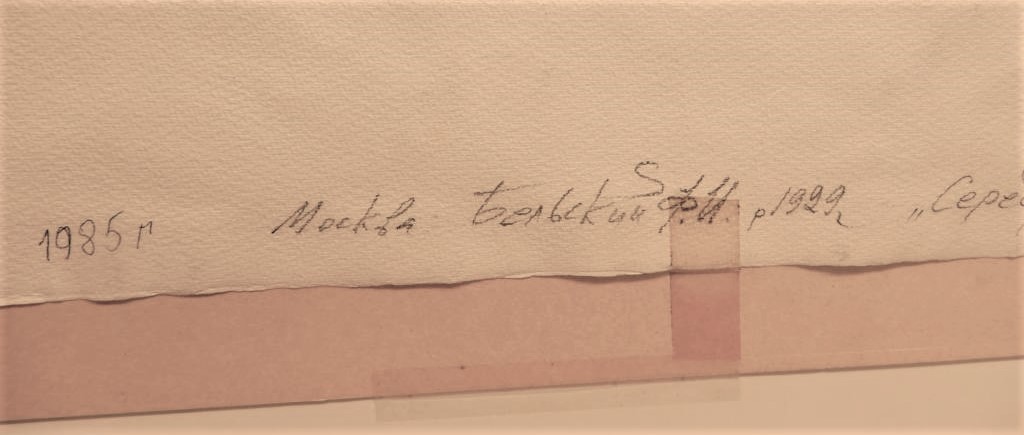 1985 г Москва Бельский Ф.И. р, 1929г „Сере